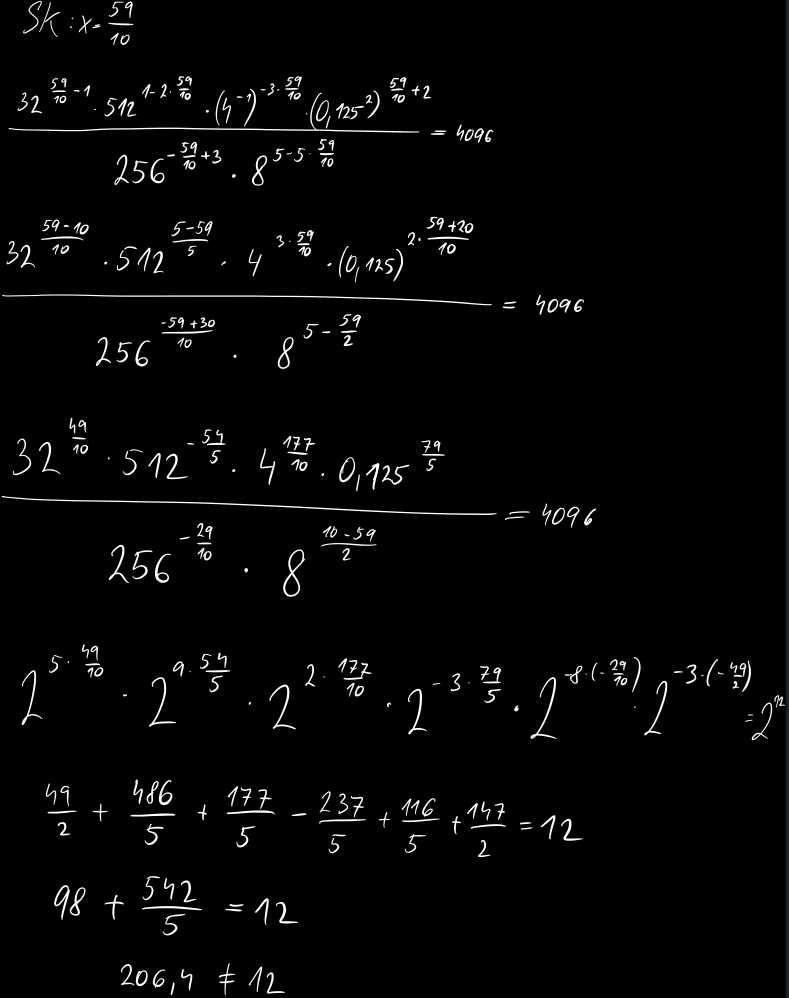 SK: x = 59/10
(32^(59/10 - 1) · 512^(1 - 2 · 59/10) · (4^(-1))^(-3 · 59/10) · (0,125^2)^(59/10 + 2)) / (256^(-59/10 + 3) · 8^(5 - 5 · 59/10)) = 4096
(32^((59 - 10)/10) · 512^((5 - 59)/5) · 4^(3 · 59/10) · (0,125)^(2 · (59 + 20)/10)) / (256^((-59 + 30)/10) · 8^(5 - 59/2)) = 4096
(32^(49/10) · 512^(-54/5) · 4^(177/10) · 0,125^(79/5)) / (256^(-29/10) · 8^((10 - 59)/2)) = 4096
2^(5 · 49/10) · 2^(9 · 54/5) · 2^(2 · 177/10) · 2^(-3 · 79/5) · 2^(-8 · (-29/10)) · 2^(-3 · (-49/2)) = 2^12
49/2 + 486/5 + 177/5 - 237/5 + 116/5 + 147/2 = 12
98 + 542/5 = 12
206,4 ≠ 12